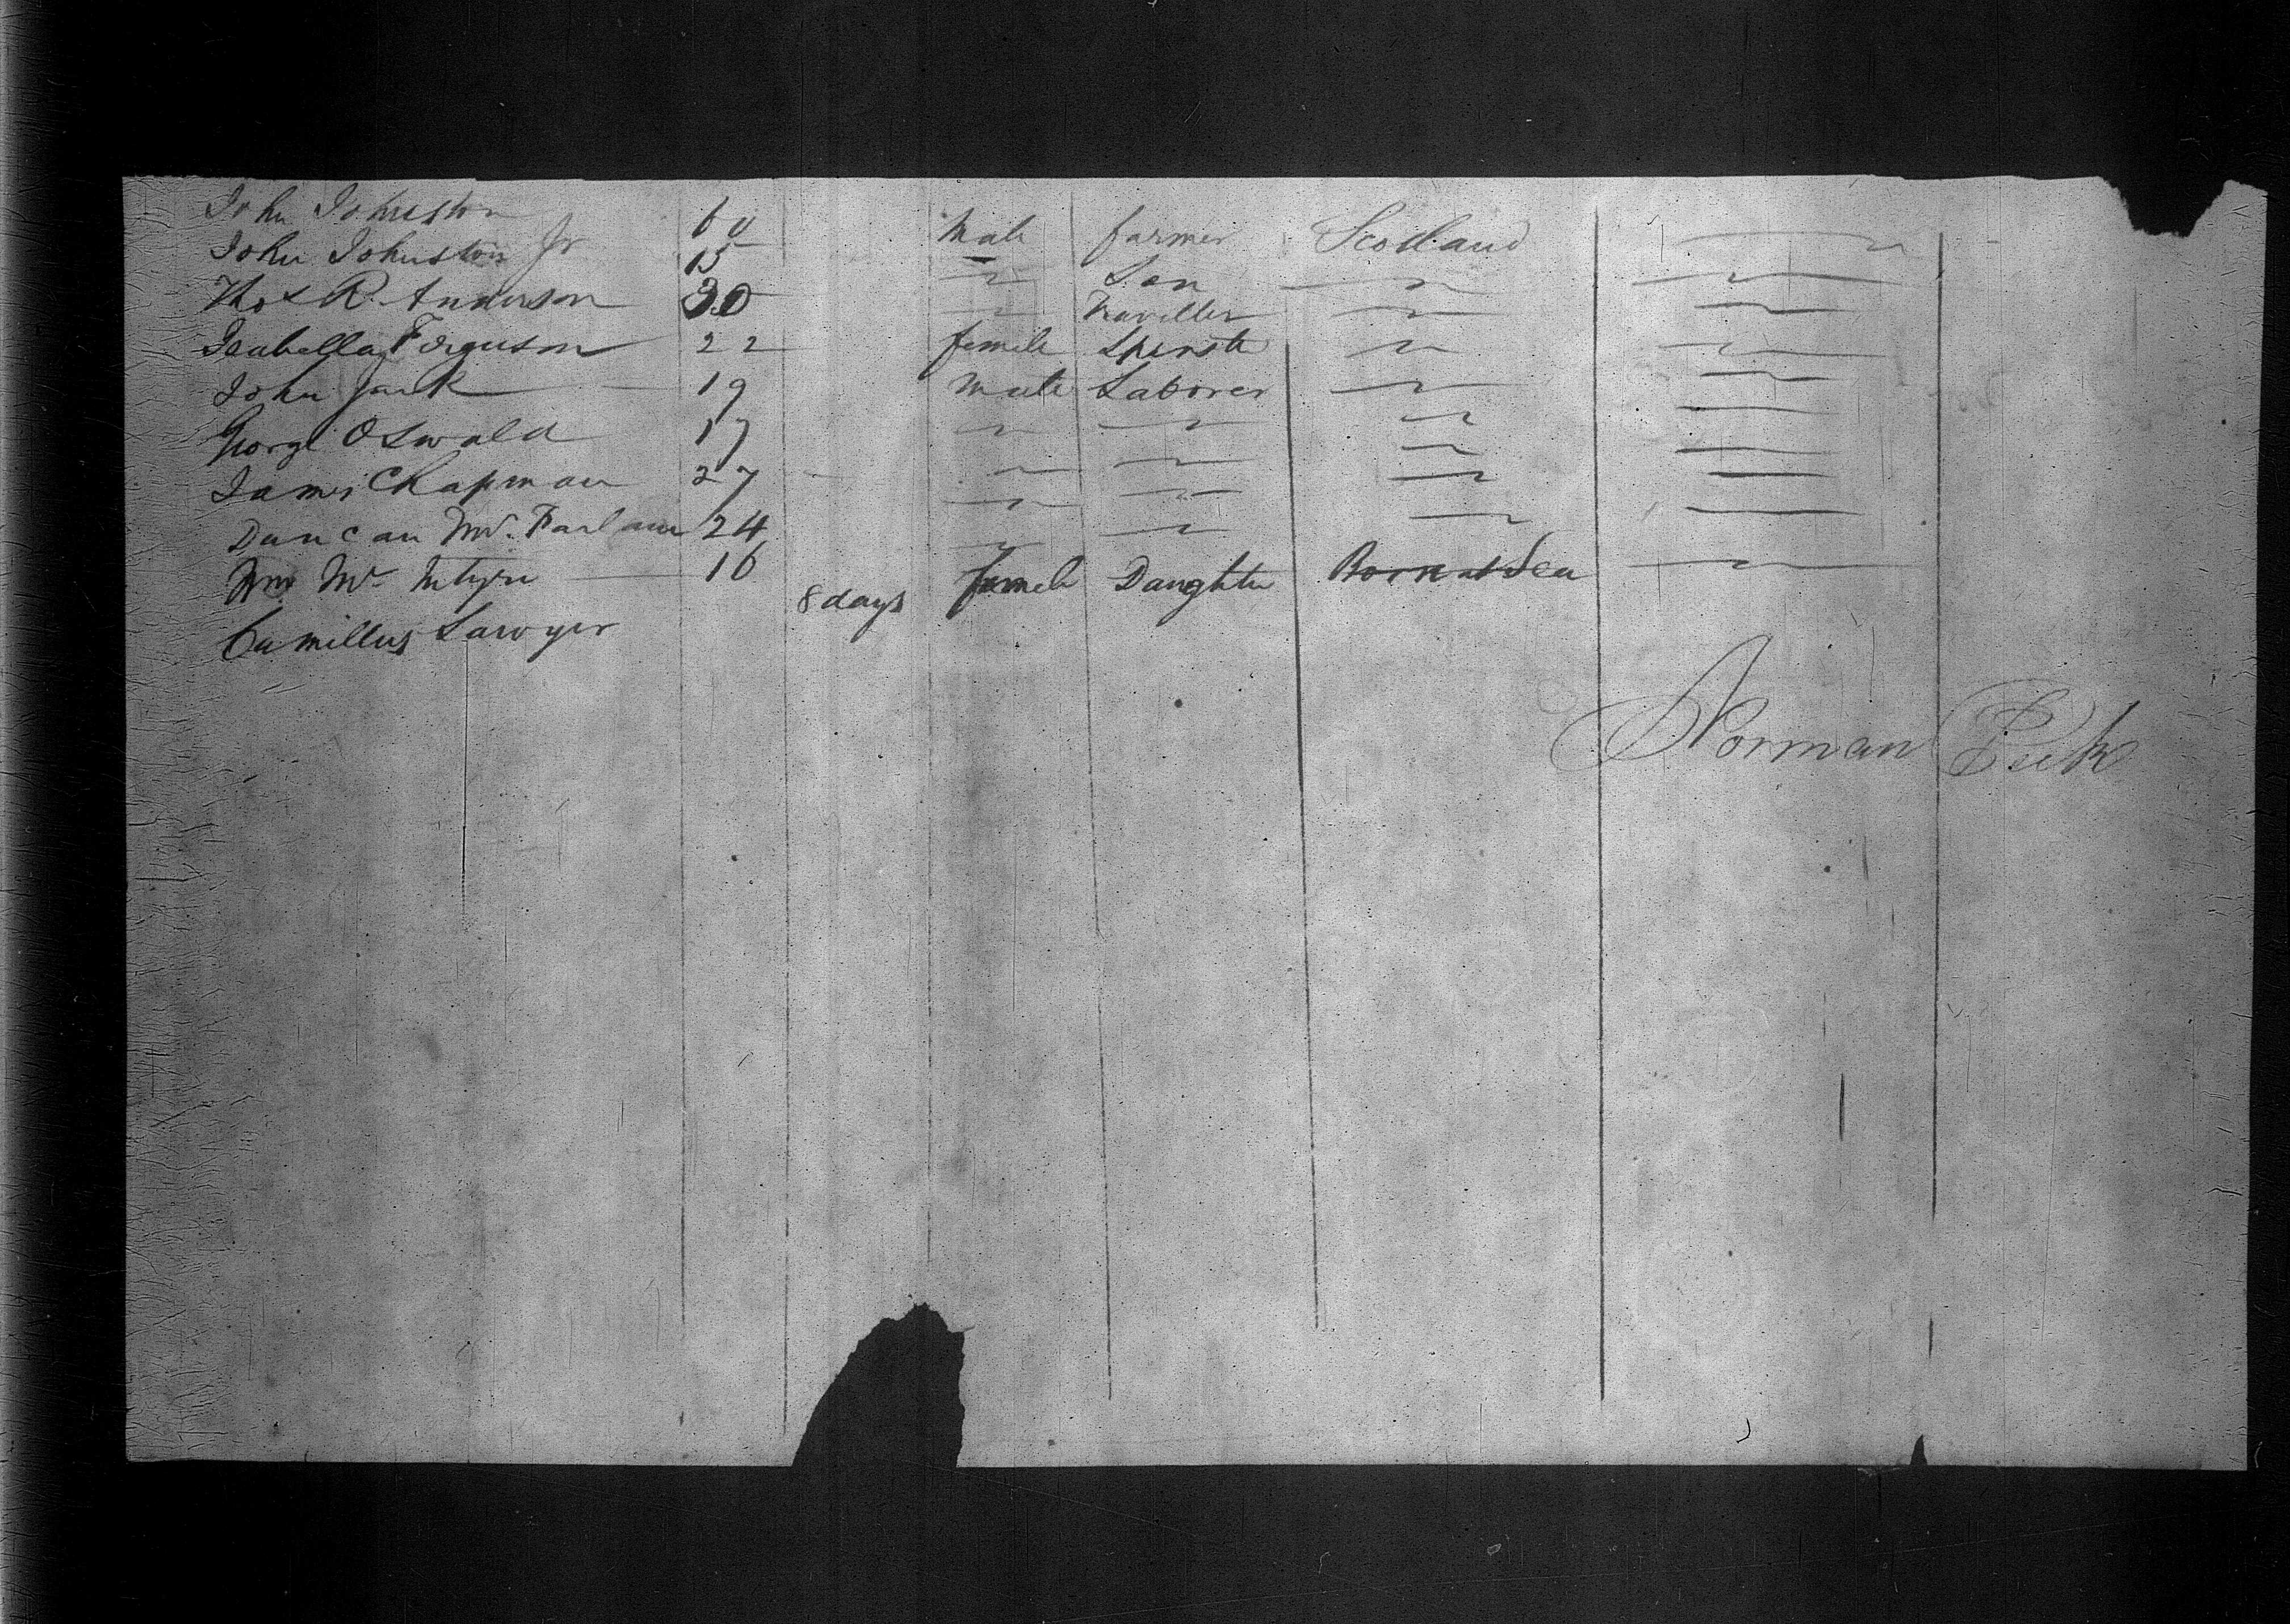 John Johnston 60 Male farmer Scotland
John Johnston Jr 15 " Son " "
Thos R. Anderson 30 " Traveller " "
Isabella Ferguson 22 female Spinster " "
John Jack 19 Male Laborer " "
George Oswald 17 " " " "
James Chapman 27 " " " "
Duncan Mc. Farlane 24 " " " "
Wm Mc Intyre 16 " " " "
Camillus Sawyer 8 days female Daughter Born at Sea "
Norman Peck